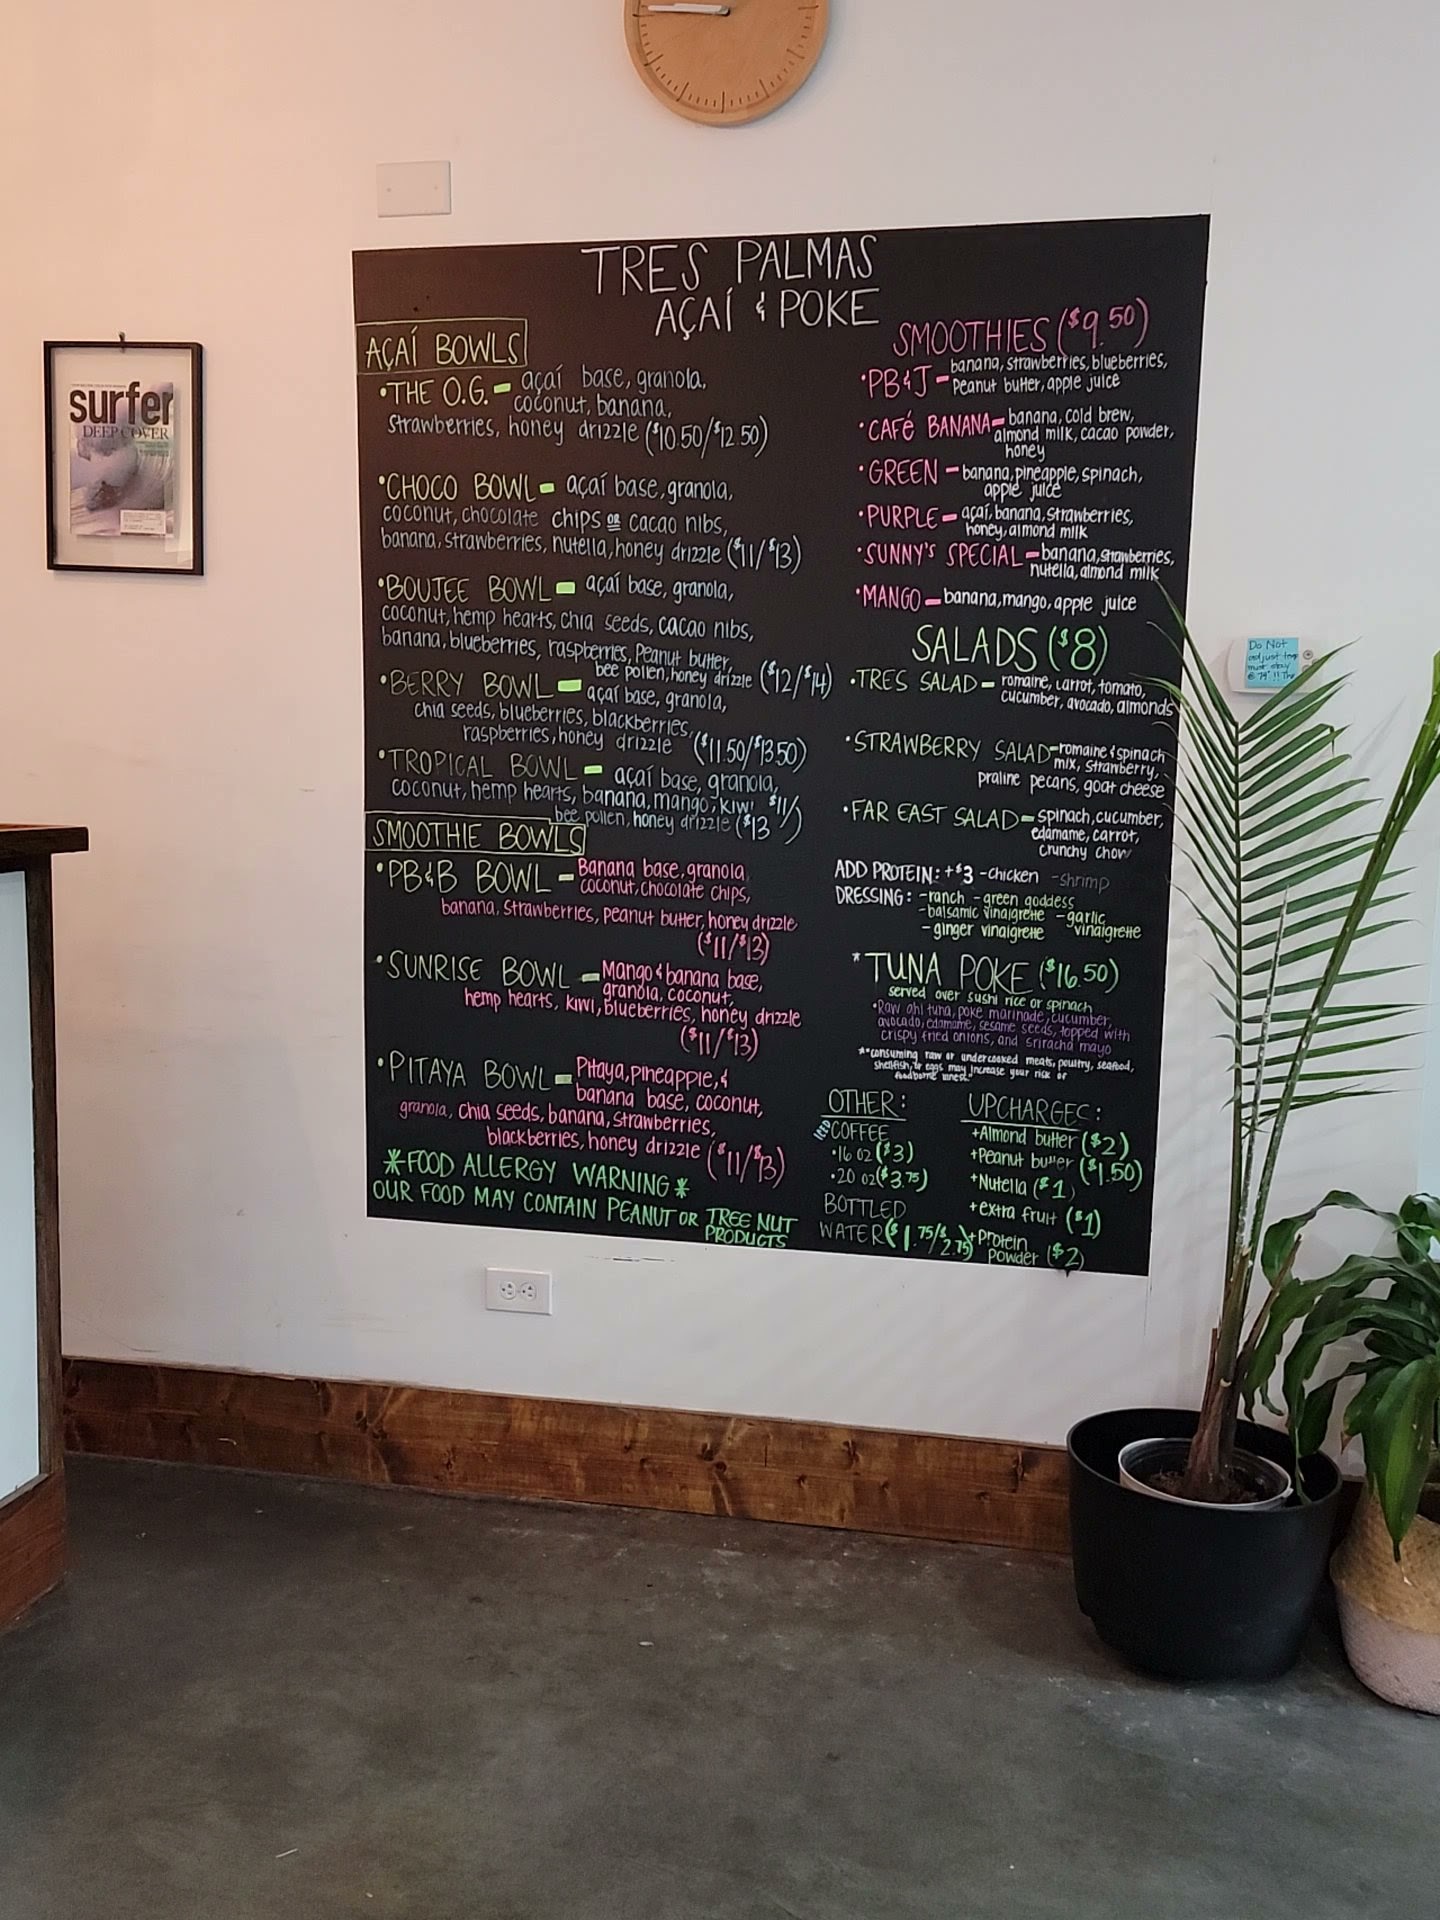 TRES PALMAS
AÇAÍ & POKE
AÇAÍ BOWLS
•THE O.G. - açaí base, granola,
coconut, banana,
strawberries, honey drizzle ($10.50/$12.50)
•CHOCO BOWL - açaí base, granola,
coconut, chocolate chips or cacao nibs,
banana, strawberries, nutella, honey drizzle ($11/$13)
•BOUJEE BOWL - açaí base, granola,
coconut, hemp hearts, chia seeds, cacao nibs,
banana, blueberries, raspberries, Peanut butter,
bee pollen, honey drizzle ($12/$14)
•BERRY BOWL - açaí base, granola,
chia seeds, blueberries, blackberries,
raspberries, honey drizzle ($11.50/$13.50)
•TROPICAL BOWL - açaí base, granola,
coconut, hemp hearts, banana, mango, kiwi, $11/
bee pollen, honey drizzle ($13)
SMOOTHIE BOWLS
•PB&B BOWL - Banana base, granola
coconut, chocolate chips,
banana, strawberries, peanut butter, honey drizzle
($11/$13)
•SUNRISE BOWL - Mango & banana base,
granola, coconut,
hemp hearts, kiwi, blueberries, honey drizzle
($11/$13)
•PITAYA BOWL - Pitaya, pineapple, &
banana base, coconut,
granola, chia seeds, banana, strawberries,
blackberries, honey drizzle ($11/$13)
*FOOD ALLERGY WARNING*
OUR FOOD MAY CONTAIN PEANUT OR TREE NUT
PRODUCTS
SMOOTHIES ($9.50)
•PB&J - banana, strawberries, blueberries,
Peanut butter, apple juice
•CAFÉ BANANA - banana, cold brew,
almond milk, cacao powder,
honey
•GREEN - banana, pineapple, spinach,
apple juice
•PURPLE - açaí, banana, strawberries,
honey, almond milk
•SUNNY'S SPECIAL - banana, strawberries,
nutella, almond milk
•MANGO - banana, mango, apple juice
SALADS ($8)
•TRES SALAD - romaine, carrot, tomato,
cucumber, avocado, almonds
•STRAWBERRY SALAD - romaine & spinach
mix, strawberry,
praline pecans, goat cheese
•FAR EAST SALAD - spinach, cucumber,
edamame, carrot,
crunchy chow
ADD PROTEIN: +$3 -chicken -shrimp
DRESSING: -ranch -green goddess
-balsamic vinaigrette -garlic vinaigrette
-ginger vinaigrette
*TUNA POKE ($16.50)
served over sushi rice or spinach
•Raw ahi tuna, poke marinade, cucumber,
avocado, edamame, sesame seeds, topped with
crispy fried onions, and sriracha mayo
*"consuming raw or undercooked meats, poultry, seafood,
shellfish, or eggs may increase your risk of
foodborne illness"
OTHER:
ICED
COFFEE
•16 oz ($3)
•20 oz ($3.75)
BOTTLED
WATER ($1.75/$2.75)
UPCHARGES:
+Almond butter ($2)
+Peanut butter ($1.50)
+Nutella ($1)
+extra fruit ($1)
+Protein
powder ($2)
surfer
DEEP COVER
Do Not
adjust temp
must stay
@ 74° !!